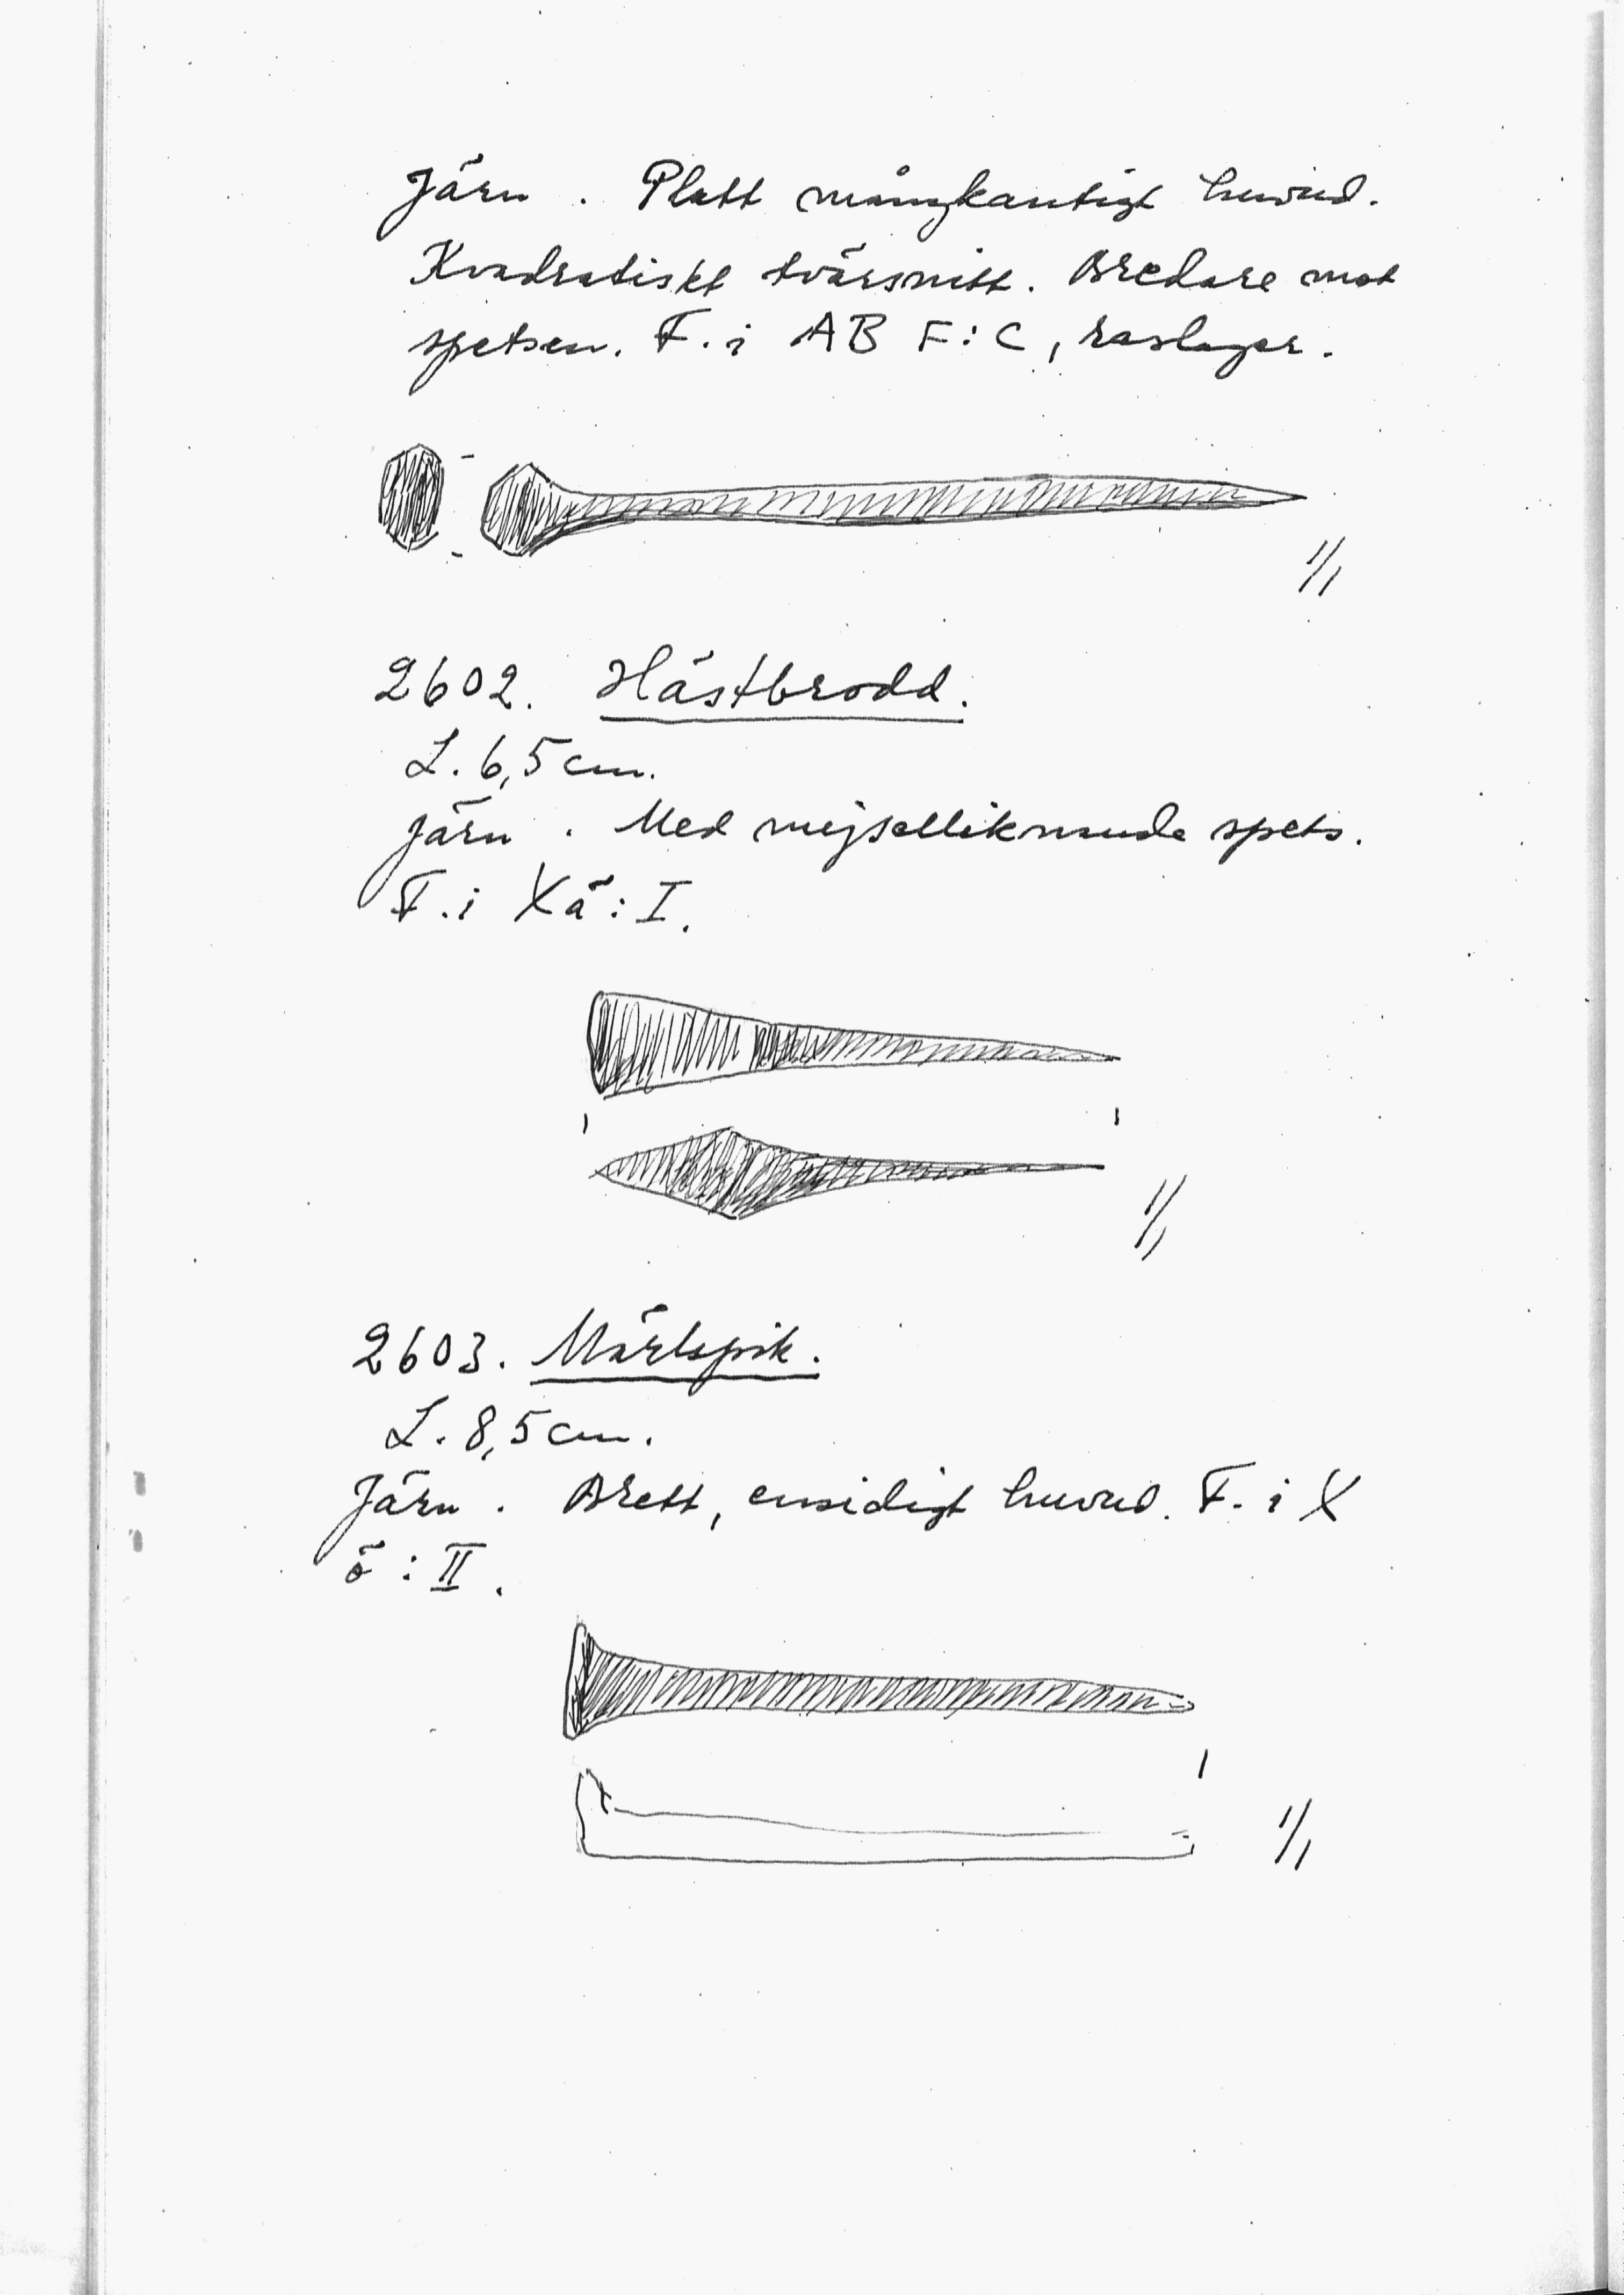 Järn. Platt mångkantigt huvud.
Kvadratiskt tvärsnitt. Bredare mot
spetsen. F. i AB F:C, raslager.
1/1
2602. Hästbrodd.
L. 6,5 cm.
Järn. Med mejselliknande spets.
F. i Xä:I.
1/1
2603. Märlspik.
L. 8,5 cm.
Järn. Brett, ensidigt huvud. F. i X
ö:II.
1/1